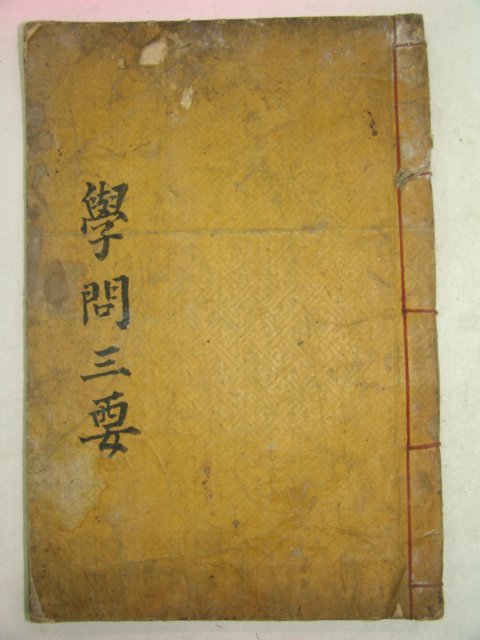 學問三要